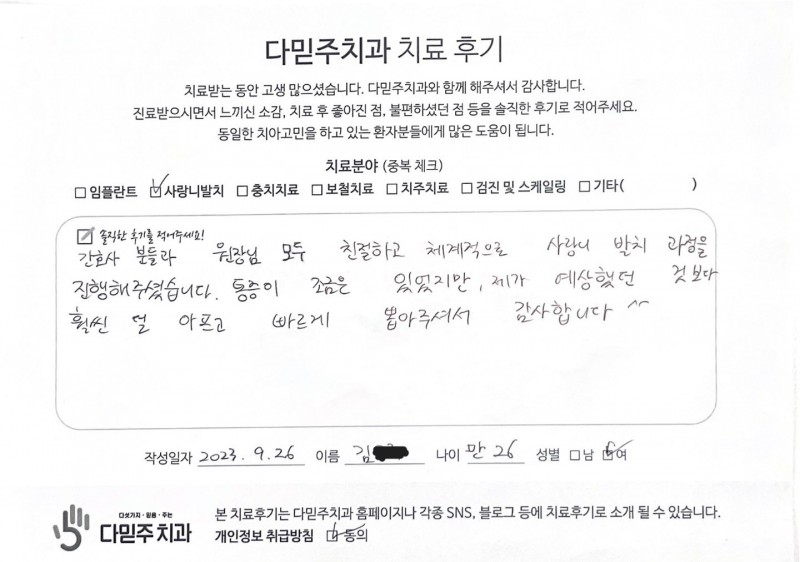 다믿주치과 치료 후기
치료받는 동안 고생 많으셨습니다. 다믿주치과와 함께 해주셔서 감사합니다.
진료받으시면서 느끼신 소감, 치료 후 좋아진 점, 불편하셨던 점 등을 솔직한 후기로 적어주세요.
동일한 치아고민을 하고 있는 환자분들에게 많은 도움이 됩니다.
치료분야 (중복 체크)
□ 임플란트 ☑ 사랑니발치 □ 충치치료 □ 보철치료 □ 치주치료 □ 검진 및 스케일링 □ 기타( )
솔직한 후기를 적어주세요!
간호사 분들과 원장님 모두 친절하고 체계적으로 사랑니 발치 과정을
진행해주셨습니다. 통증이 조금은 있었지만, 제가 예상했던 것보다
훨씬 덜 아프고 빠르게 뽑아주셔서 감사합니다 ^^
작성일자 2023. 9. 26 이름 김 나이 만 26 성별 □남 ☑여
다섯가지·믿음·주는
다믿주치과
본 치료후기는 다믿주치과 홈페이지나 각종 SNS, 블로그 등에 치료후기로 소개 될 수 있습니다.
개인정보 취급방침 ☑동의